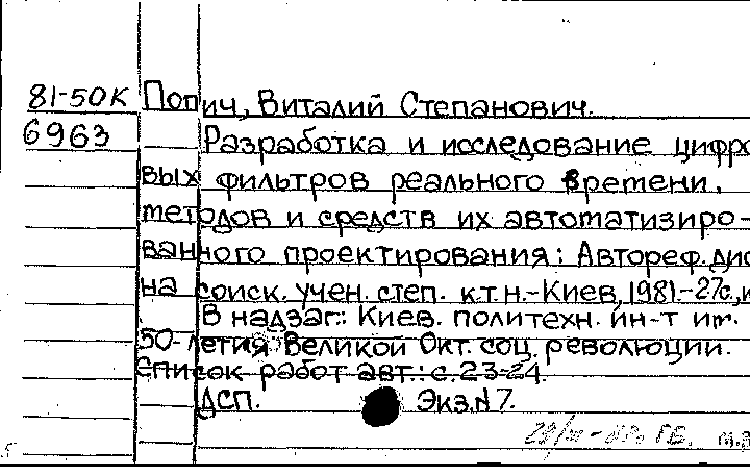 81-50К Попич, Виталий Степанович.
6963 Разработка и исследование цифро
вых фильтров реального времени,
методов и средств их автоматизиро-
ванного проектирования: Автореф. дис
на соиск. учен. степ. к.т.н.-Киев, 1981.-27с,
В надзаг.: Киев. политехн. ин-т им.
50-летия Великой Окт. соц. революции.
Список работ авт.: с.23-24.
ДСП. Экз.№7.